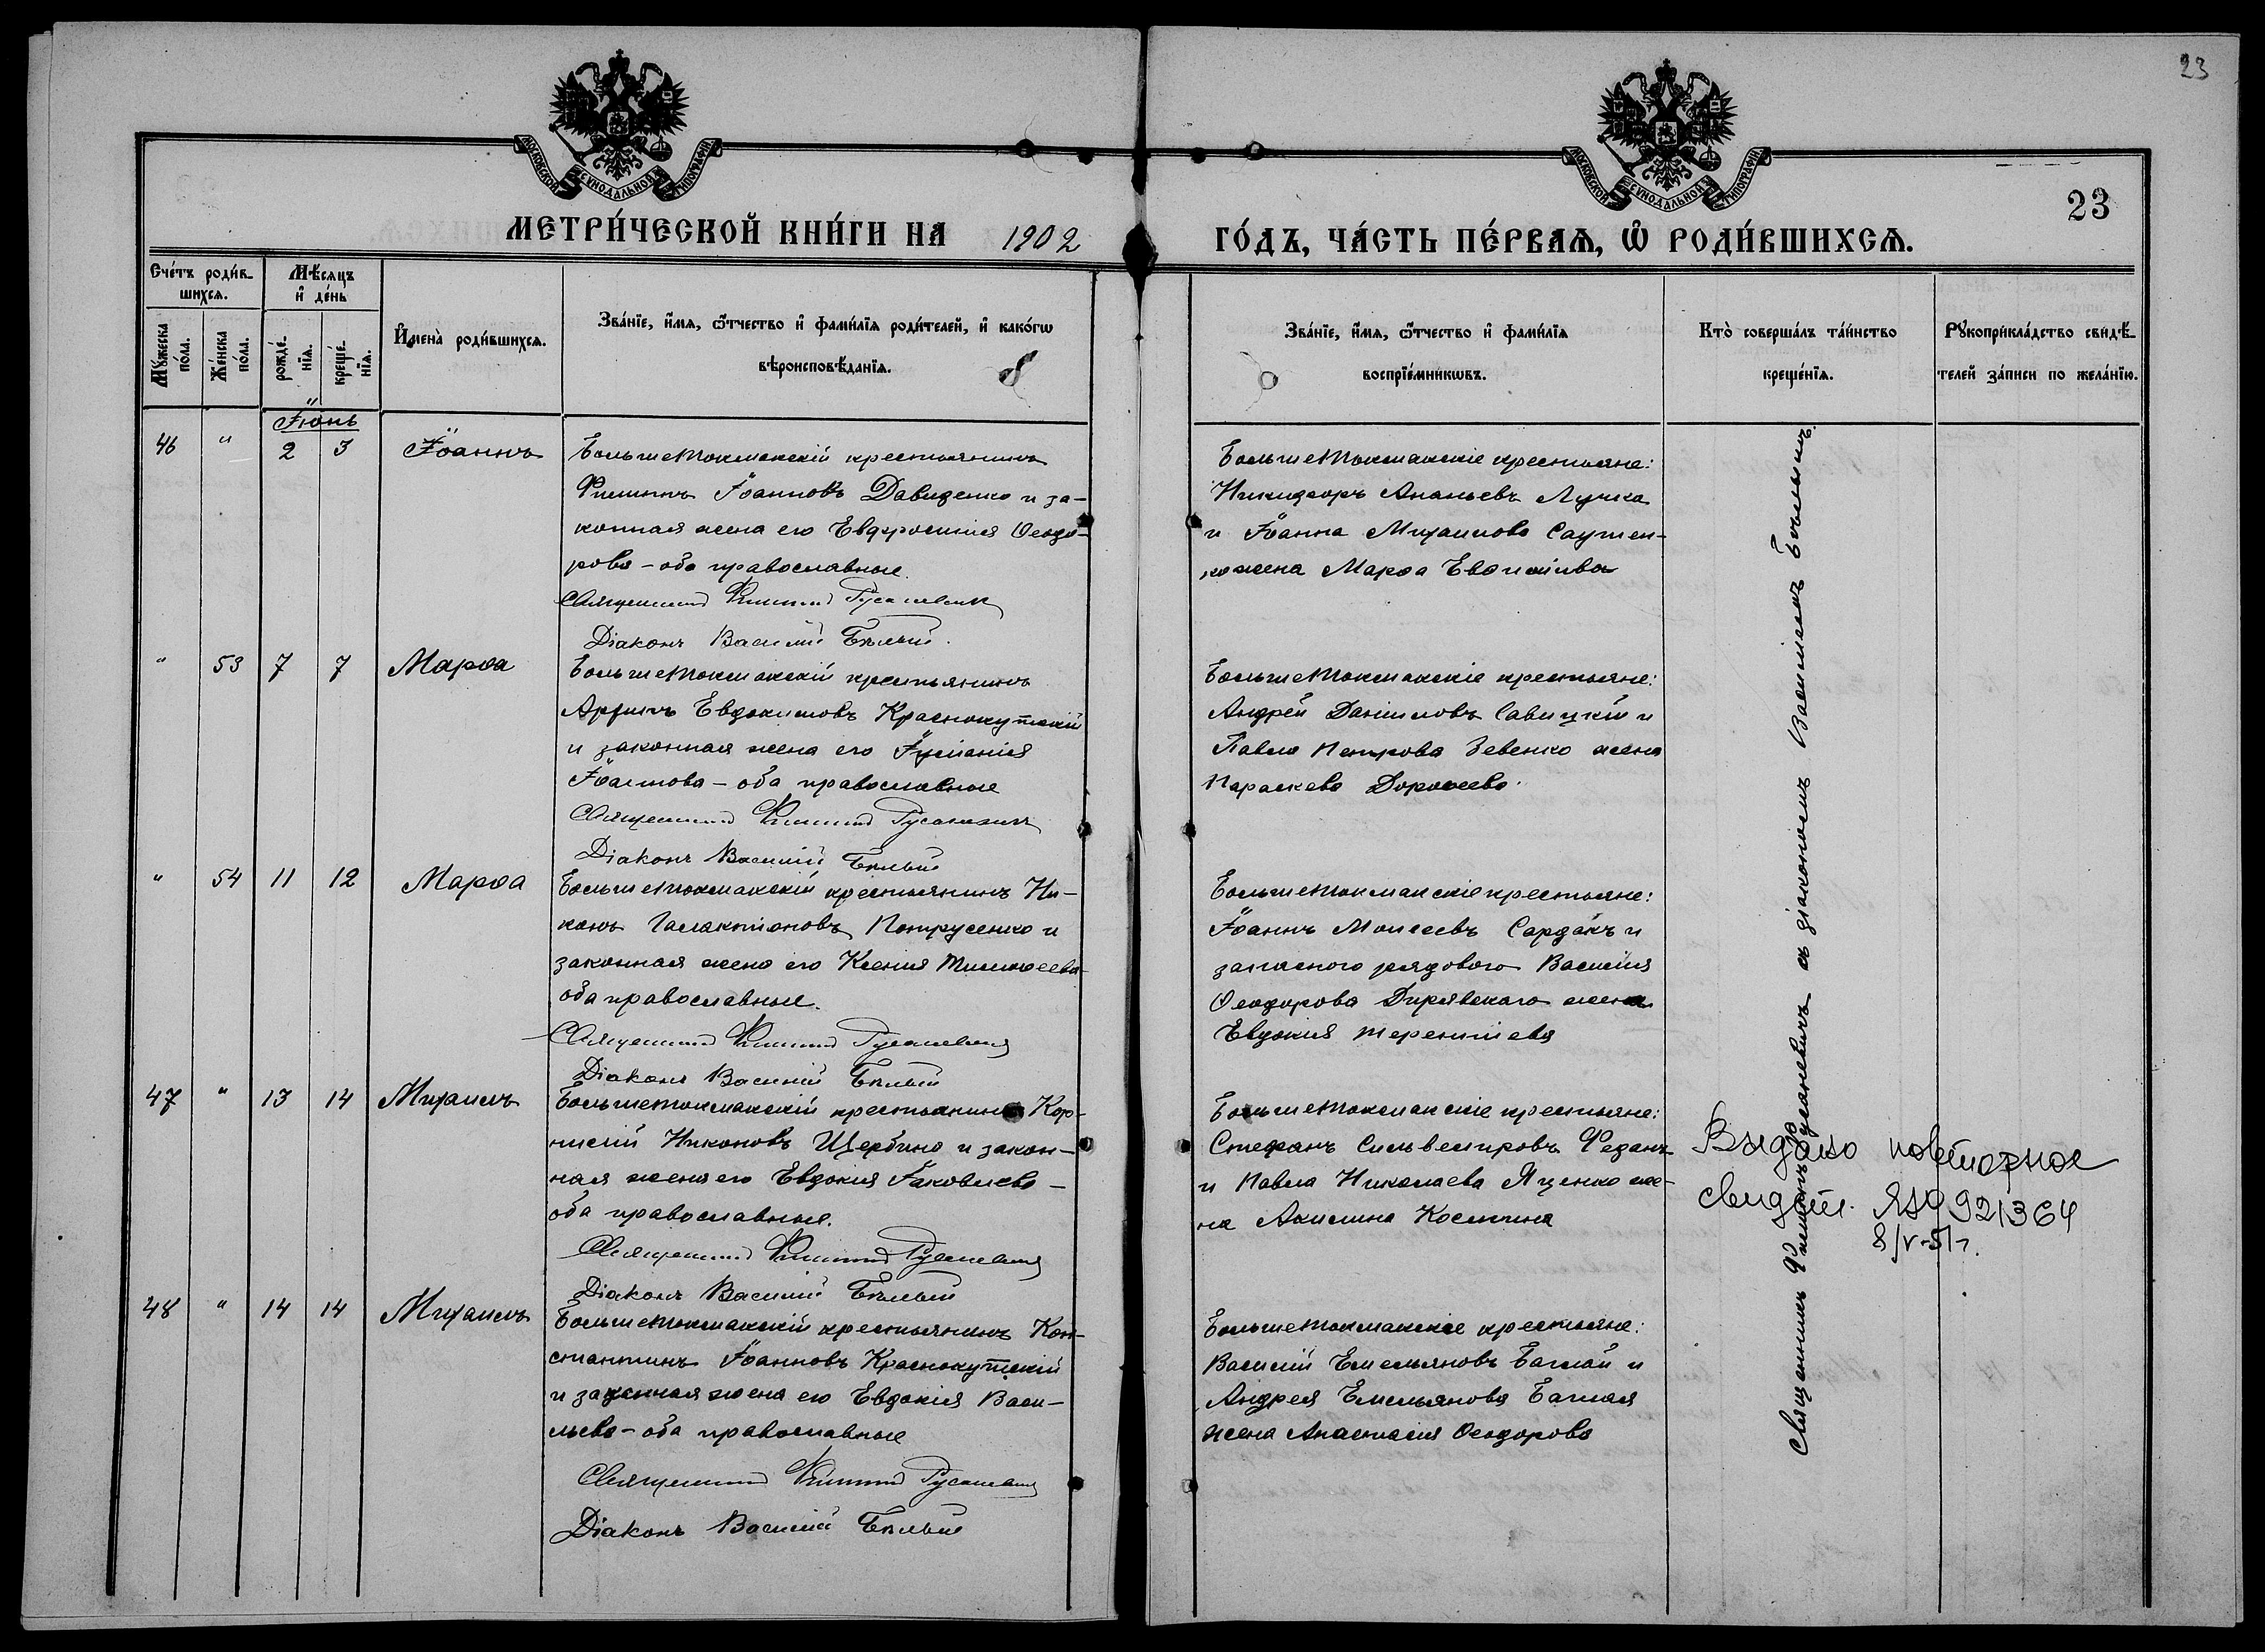 23
МОСКОВСКОЙ СѴНОДАЛЬНОЙ ТИПОГРАФІИ
МОСКОВСКОЙ СѴНОДАЛЬНОЙ ТИПОГРАФІИ
23
МЕТРИ́ЧЕСКОЙ КНИ́ГИ НА 1902 ГО́ДЪ, ЧА́СТЬ ПЕ́РВАѦ, Ѡ РОДИ́ВШИХСѦ.
Сче́тъ роди́в-
шихсѧ.
Мꙋ́жеска по́ла.
Же́нска по́ла.
Мѣ́сяцъ
и҆ де́нь
рожде́-
нїѧ.
креще́-
нїѧ.
И҆мена̀ роди́вшихсѧ.
Зва́нїе, и҆́мѧ, ѻ҆́тчество и҆ фами́лїѧ роди́телей, и҆ како́гѡ
вѣроисповѣ́данїѧ.
Зва́нїе, и҆́мѧ, ѻ҆́тчество и҆ фами́лїѧ
воспрїе́мникѡвъ.
Кто̀ соверша́лъ та́инство
креще́нїѧ.
Рꙋкоприкла́дство свидѣ́-
телей за́писи по жела́нїю.
Іюнь
46 " 2 3 Іоаннъ
Большетокмакскій крестьянинъ
Филиппъ Іоанновъ Давиденко и за-
конная жена его Евфросинія Ѳеодо-
рова - оба православные.
Священникъ Филиппъ Гусаневичъ
Діаконъ Василій Бѣлый.
Большетокмакскіе крестьяне:
Никифоръ Ананьевъ Лучка
и Іоанна Михаилова Саушен-
ко жена Марѳа
" 53 7 7 Марѳа
Большетокмакскій крестьянинъ
Евдокимовъ Краснокутскій
и законная жена его Іуліанія
Іоаннова - оба православные
Священникъ Филиппъ Гусаневичъ
Діаконъ Василій Бѣлый
Большетокмакскіе крестьяне:
Андрей Даніиловъ Савицкій и
Павла Петрова Зевенко жена
Параскева Дороѳеева.
" 54 11 12 Марѳа
Большетокмакскій крестьянинъ Ни-
конъ Галактіоновъ Петрусенко и
законная жена его Ксенія Тимоѳеева
оба православные.
Священникъ Филиппъ Гусаневичъ
Діаконъ Василій Бѣлый
Большетокмакскіе крестьяне:
Іоаннъ Моисеевъ Сардакъ и
запасного рядового Василія
Ѳеодорова Дирявскаго жена
Евдокія Терентіева
47 " 13 14 Михаилъ
Большетокмакскій крестьянинъ Кор-
нилій Никоновъ Щербина и закон-
ная жена его Евдокія Іаковлева -
оба православные.
Священникъ Филиппъ Гусаневичъ
Діаконъ Василій Бѣлый
Большетокмакскіе крестьяне:
Стефанъ Сильвестровъ Феданъ
и Павла Николаева Яценко же-
на Акилина Косьмина
Выдано повторное
свидет. ЯЮ 921364
8/V-51 г.
48 " 14 14 Михаилъ
Большетокмакскій крестьянинъ Кон-
стантинъ Іоанновъ Краснокутскій
и законная жена его Евдокія Васи-
льева - оба православные
Священникъ Филиппъ Гусаневичъ
Діаконъ Василій Бѣлый
Большетокмакскіе крестьяне:
Василій Емельяновъ Баглай и
Андрея Емельянова Баглая
жена Анастасія Ѳеодорова
Священникъ Филиппъ Гусаневичъ съ діакономъ Василіемъ Бѣлымъ.